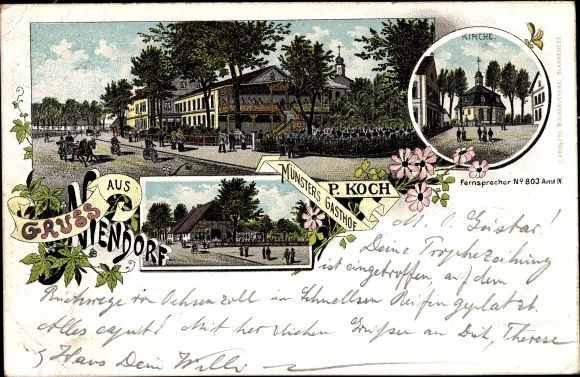 KIRCHE.
J. KRÖGERS BUCHDRUCKEREI, BLANKENESE
P. KOCH
MÜNSTERS GASTHOF
Fernsprecher No 803 Amt IV.
GRUSS AUS NIENDORF
M. l. Gustav!
Deine
ist eingetroffen auf dem
Rückwege von Ochsenzoll im Schnellsten Reifen geplatzt.
Alles egal! Mit herzlichen Grüßen an Dich, Therese
& Hans Dein Willi